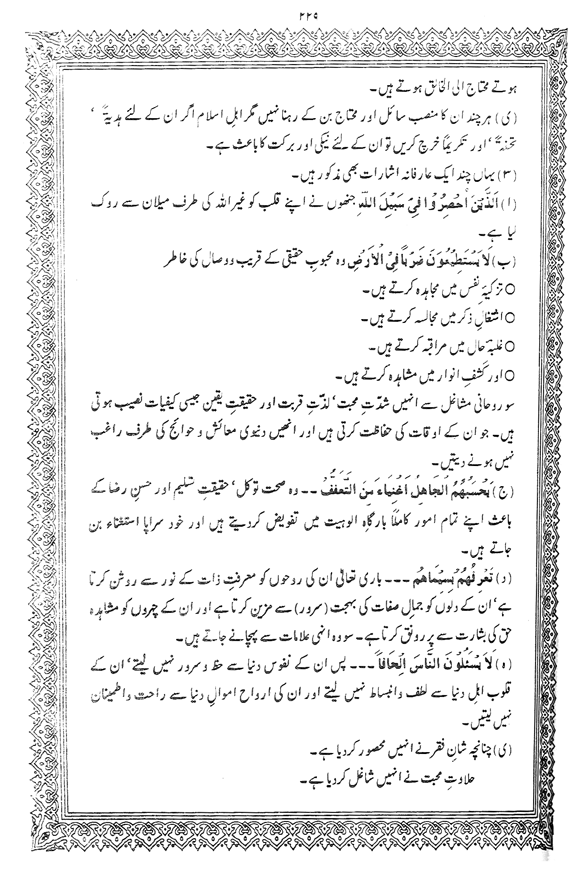 ۲۲۵
ہوتے محتاج الی الخالق ہوتے ہیں۔
(ی) ہر چند ان کا منصب سائل اور محتاج بن کے رہنا نہیں مگر اہلِ اسلام اگر ان کے لئے ہدیۃً ‘
تحفۃً ‘ اور تکریماً خرچ کریں تو ان کے لئے نیکی اور برکت کا باعث ہے۔
(۳) یہاں چند ایک عارفانہ اشارات بھی مذکور ہیں۔
(ا) اَلَّذِیْنَ اُحْصِرُوْا فِیْ سَبِیْلِ اللّٰہِ جنھوں نے اپنے قلب کو غیر اللہ کی طرف میلان سے روک
لیا ہے۔
(ب) لَا یَسْتَطِیْعُوْنَ ضَرْبًا فِی الْاَرْضِ وہ محبوبِ حقیقی کے قریب و وصال کی خاطر
○ تزکیۂ نفس میں مجاہدہ کرتے ہیں۔
○ اشغالِ ذکر میں مجالسہ کرتے ہیں۔
○ غلبۂ حال میں مراقبہ کرتے ہیں۔
○ اور کشفِ انوار میں مشاہدہ کرتے ہیں۔
سو روحانی مشاغل سے انہیں شدّتِ محبت‘ لذّتِ قربت اور حقیقتِ یقین جیسی کیفیات نصیب ہوتی
ہیں۔ جو ان کے اوقات کی حفاظت کرتی ہیں اور انھیں دنیوی معائش و حوائج کی طرف راغب
نہیں ہونے دیتیں۔
(ج) یَحْسَبُھُمُ الْجَاھِلُ اَغْنِیَاءَ مِنَ التَّعَفُّفْ -- وہ صحت توکل‘ حقیقتِ تسلیم اور حسنِ رضا کے
باعث اپنے تمام امور کاملاً بارگاہِ الوہیت میں تفویض کر دیتے ہیں اور خود سراپا استغناء بن
جاتے ہیں۔
(د) تَعْرِفُھُمْ بِسِیْمَاھُمْ --- باری تعالٰی ان کی روحوں کو معرفتِ ذات کے نور سے روشن کرتا
ہے‘ ان کے دلوں کو جمالِ صفات کی بہجت (سرور) سے مزین کرتا ہے اور ان کے چہروں کو مشاہدہ
حق کی بشارت سے پر رونق کرتا ہے۔ سو وہ انہی علامات سے پہچانے جاتے ہیں۔
(ہ) لَا یَسْئَلُوْنَ النَّاسَ اِلْحَافًا --- پس ان کے نفوس دنیا سے حظ و سرور نہیں لیتے‘ ان کے
قلوب اہلِ دنیا سے لطف و انبساط نہیں لیتے اور ان کی ارواح اموالِ دنیا سے راحت و اطمینان
نہیں لیتیں۔
(ی) چنانچہ شانِ فقر نے انہیں محصور کر دیا ہے۔
حلاوتِ محبت نے انہیں شاغل کر دیا ہے۔